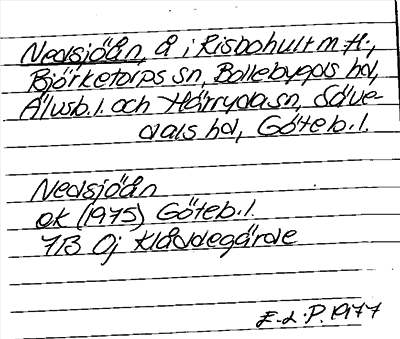 Nedsjöån, å i Risbohult m.fl.,
Björketorps sn, Bollebygds hd,
Älvsb.l. och Härryda sn, Säve-
dals hd, Göteb.l.
Nedsjöån
ek (1975) Göteb.l.
7B 0j Klåddegärde
E.L.P. 1977